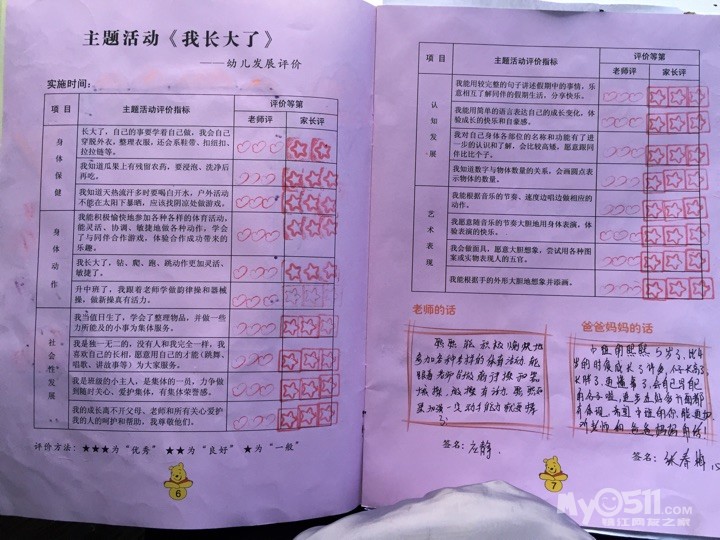 主题活动《我长大了》
——幼儿发展评价
实施时间：
项 目
主题活动评价指标
评价等第
老师评
家长评
身体保健
长大了，自己的事要学着自己做，我会自己
穿脱外衣，整理衣服，还会系鞋带、扣纽扣、
拉拉链等。
我知道瓜果上有残留农药，要浸泡、洗净后
再吃。
我知道天热流汗多时要喝白开水，户外活动
不能在太阳下暴晒，应该找阴凉处做游戏。
身体动作
我能积极愉快地参加各种各样的体育活动，
能灵活、协调、敏捷地做各种动作，学会
了与同伴合作游戏，体验合作成功带来的
乐趣。
我长大了，钻、爬、跑、跳动作更加灵活、
敏捷了。
升中班了，我跟着老师学做韵律操和器械
操，做新操真有活力。
社会性发展
我当值日生了，学会了整理物品，并做一些
力所能及的小事为集体服务。
我是独一无二的，没有人和我完全一样，我
喜欢自己的长相，愿意用自己的才能（跳舞、
唱歌、讲故事等）为大家服务。
我是班级的小主人，是集体的一员，力争做
到随时关心、爱护集体，有集体荣誉感。
我的成长离不开父母、老师和所有关心爱护
我的人的呵护和帮助，我尊敬他们。
评价方法：★★★为“优秀” ★★为“良好” ★为“一般”
6
项 目
主题活动评价指标
评价等第
老师评
家长评
认知发展
我能用较完整的句子讲述假期中的事情，乐
意相互了解同伴的假期生活，分享快乐。
我能用简单的语言表达自己的成长变化，体
验成长的快乐和自豪感。
我对自己身体各部位的名称和功能有了进
一步的认识和了解，会比较高矮，愿意跟同
伴比比个子。
我知道数字与物体数量的关系，会画圆点表
示物体的数量。
艺术表现
我能根据音乐的节奏、速度边唱边做相应的
动作。
我愿意随音乐的节奏大胆地用身体表演，体
验表演的快乐。
我会做面具，愿意大胆想象，尝试用各种图
案或实物表现人的五官。
我能根据手的外形大胆地想象并添画。
老师的话
熙熙能积极愉快地
参加各种各样的体育活动，能
跟着老师
签名：
爸爸妈妈的话
签名：
7
My0511.com
镇江网友之家